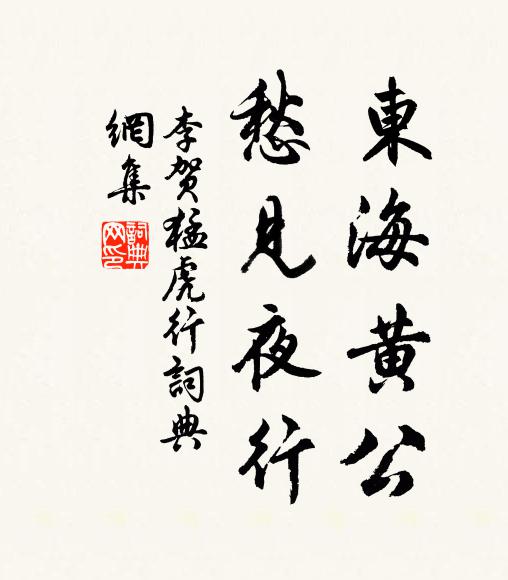 東海黃公
愁見夜行
李贺猛虎行詞典
網集
詞典网印